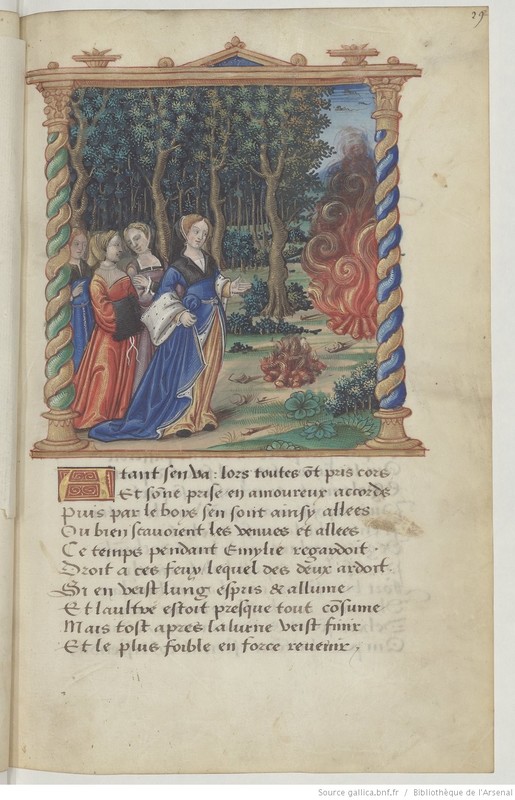 39
Atant sen va : lors toutes õt pris cors
Et sone prise en amoureux accords
Puis par le boys sen sont ainsy allees
Ou bien scavoient les venues et allees
Ce temps pendant Emylie regardoit .
Droit a ces feux lequel des deux ardoit
Si en veist lung espris & allume
Et laultre estoit presque tout cõsume
Mais tost apres veist finir
Et le plus foible en force revenir .
Source gallica.bnf.fr / Bibliothèque de l'Arsenal